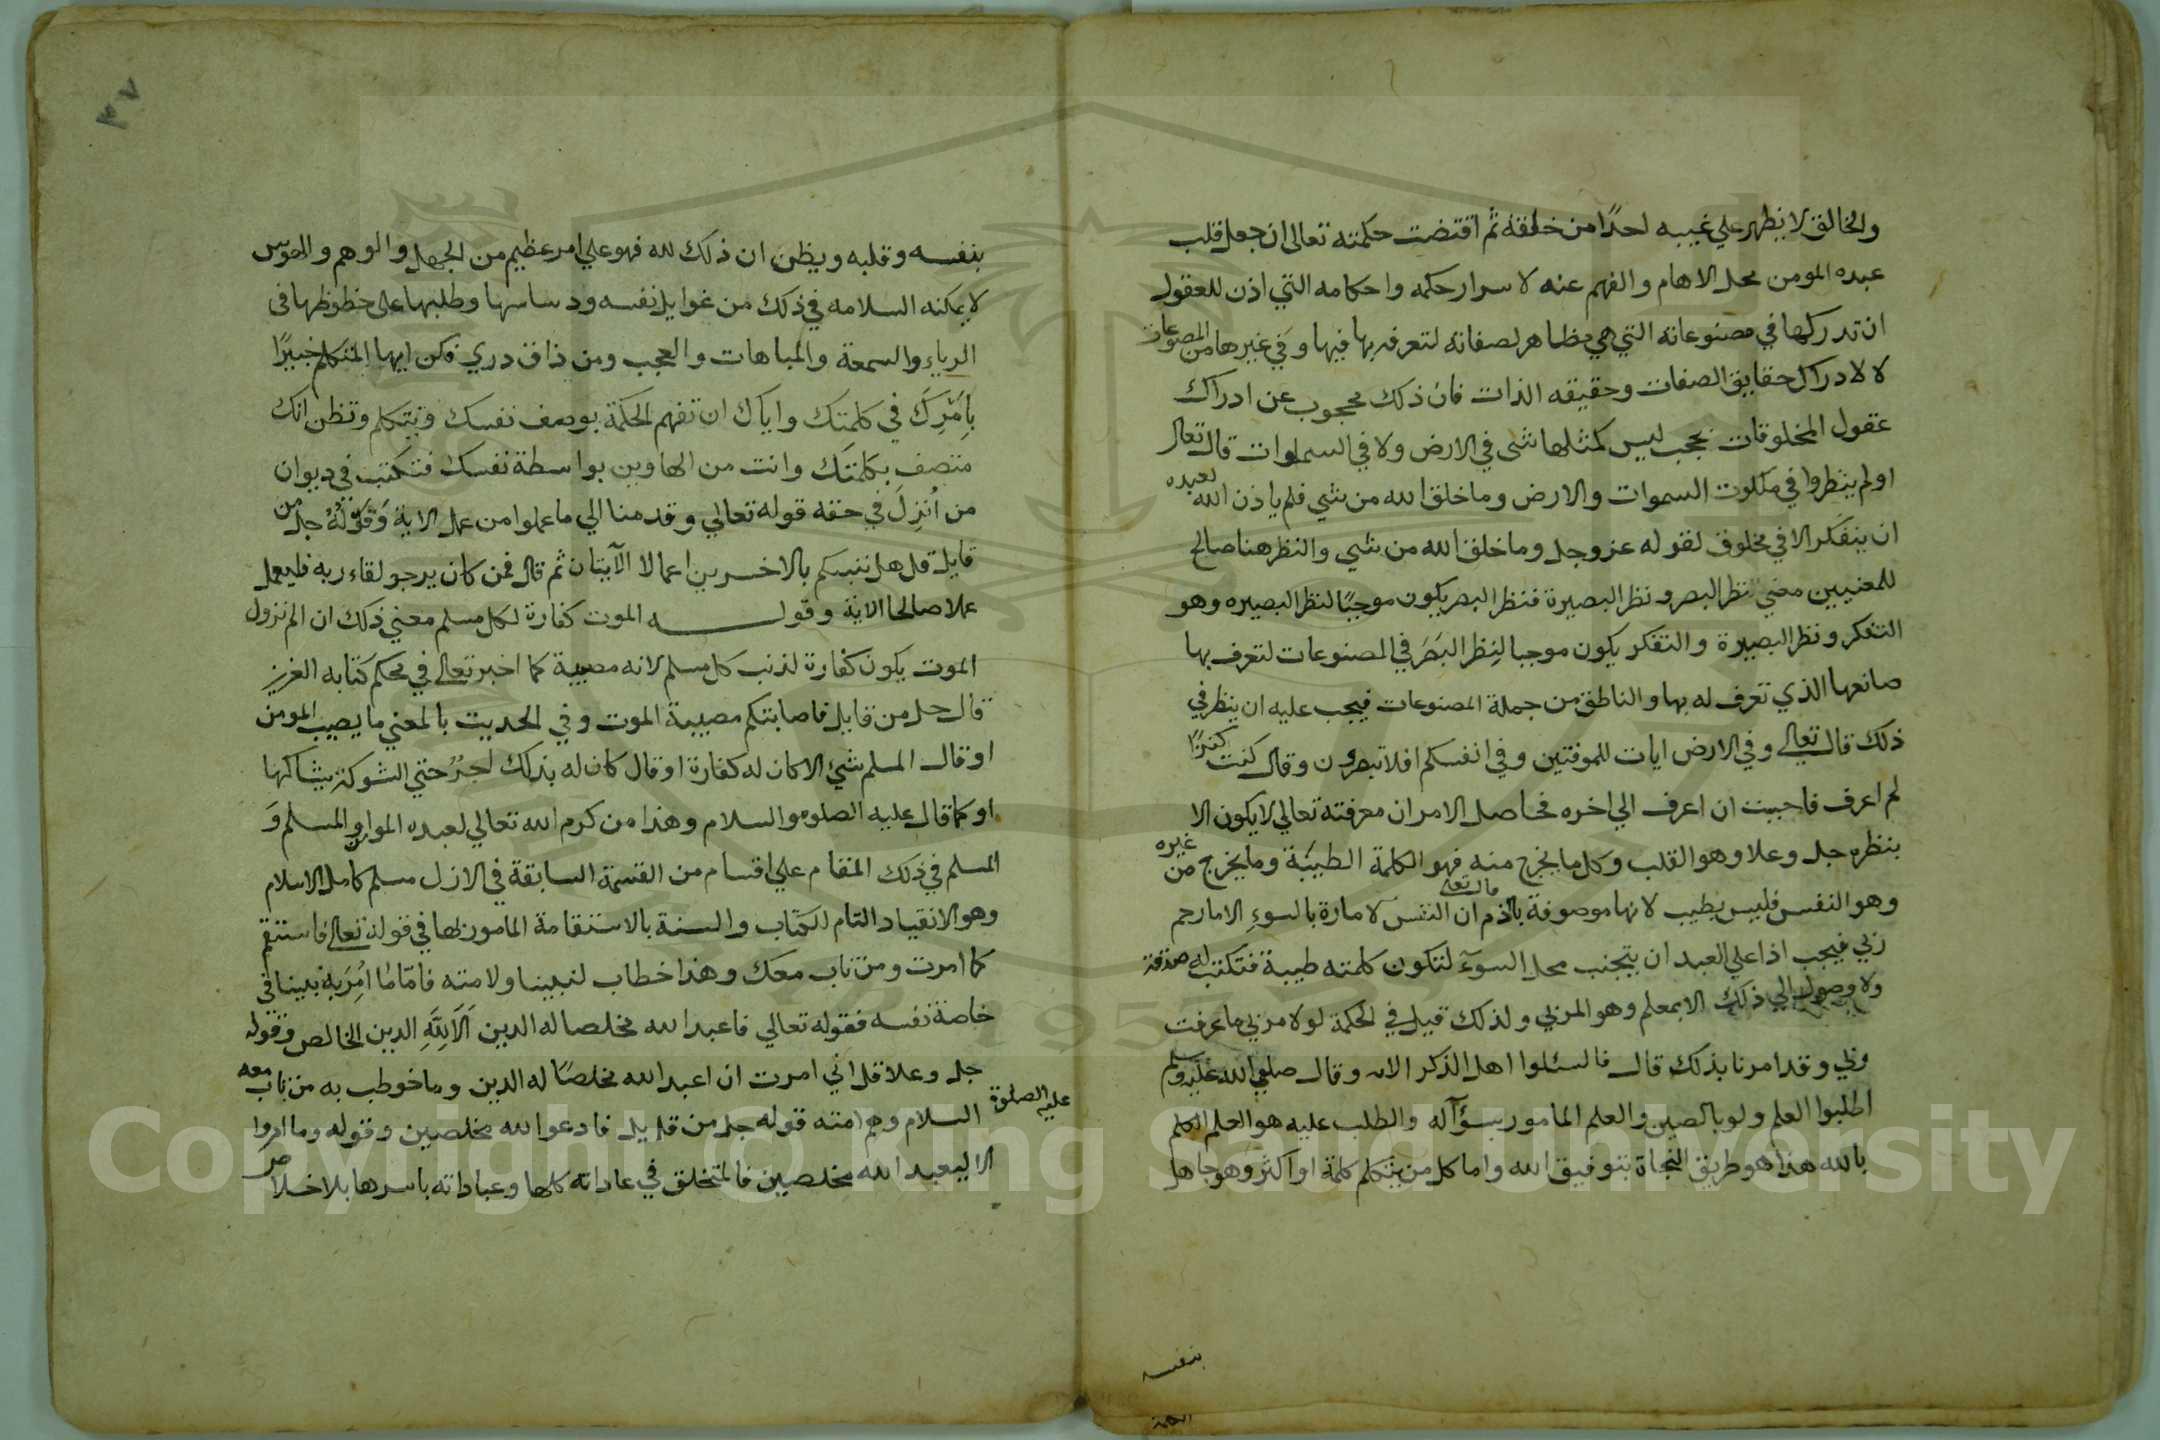 والخالق لا يظهر علي غيبه احدًا من خلقه ثم اقتضت حكمته تعالى ان جعل قلب
عبده المومن محل الالهام والفهم عنه لاسرار حكمه واحكامه التي اذن للعقول
ان تدركها في مصنوعاته التي هي مظاهر لصفاته لتعرفه بها فيها وفي غيرها من المصنوعات
لا لادراك حقايق الصفات وحقيقه الذات فان ذلك محجوب عن ادراك
عقول المخلوقات بحجب ليس كمثلها شى في الارض ولا في السماوات قال تعالى
اولم ينظروا في ملكوت السموات والارض وما خلق الله من شي فلم ياذن الله لعبده
ان يتفكر الا في مخلوق لقوله عز وجل وما خلق الله من شي والنظر هنا صالح
للمعنيين معني نظر البصر ونظر البصيرة فنظر البصر يكون موجبًا لنظر البصيره وهو
التفكر ونظر البصيرة والتفكر يكون موجبا لنظر البصر في المصنوعات لتعرف بها
صانعها الذي تعرف له بها والناطق من جملة المصنوعات فيجب عليه ان ينظر في
ذلك قال تعالي وفي الارض ايات للموقنين وفي انفسكم افلا تبصرون وقال كنت كنزًا
لم اعرف فاحببت ان اعرف الي اخره فحاصل الامر ان معرفته تعالي لا يكون الا
بنظره جل وعلا وهو القلب وكل ما يخرج منه فهو الكلمة الطيبة وما يخرج من غيره
وهو النفس فليس بطيب لانها موصوفة بالذم قال تعلي ان النفس لامارة بالسوء الا ما رحم
ربي فيجب اذا علي العبد ان يتجنب محل السوء لتكون كلمته طيبة فتكتب له صدقة
ولا وصول الي ذلك الا بمعلم وهو المربي ولذلك قيل في الحكمة لولا مربي ما عرفت
ربي وقد امرنا بذلك قال فاسئلوا اهل الذكر الايه وقال صلي الله عليه وسلم
اطلبوا العلم ولو بالصين والعلم المامور بسؤآله والطلب عليه هو العلم العلم
بالله هذا هو طريق النجاة بتوفيق الله واما كل من يتكلم كلمة او اكثر وهو جاهل
بنفسه
٣٧
بنفسه وقلبه ويظن ان ذلك لله فهو علي امر عظيم من الجهل والوهم والهوس
لا يمكنه السلامه في ذلك من غوايل نفسه ودساسها وطلبها على حظوظها في
الرياء والسمعة والمباهات والعجب ومن ذاق دري فكن ايها المتكلم خبيرًا
بامرك في كلمتك واياك ان تفهم الحكمة بوصف نفسك وتتكلم وتظن انك
متصف بكلمتك وانت من الهاوين بواسطة نفسك فتكتب في ديوان
من اُنزل في حقه قوله تعالي وقدمنا الي ما عملوا من عمل الاية وقوله جل من
قايل قل هل ننبيكم بالاخسرين اعمالا الآيتان ثم قال فمن كان يرجو لقاء ربه فليعمل
عملا صالحا الاية وقوله الموت كفارة لكل مسلم معني ذلك ان الم نزول
الموت يكون كفارة لذنب كل مسلم لانه مصيبة كما اخبر تعالى في محكم كتابه العزيز
قال جل من قايل فاصابتكم مصيبة الموت وفي الحديث بالمعني ما يصيب المومن
او قال المسلم شيئ الا كان له كفارة او قال كان له بذلك اجرٌ حتي الشوكة يشاكها
او كما قال عليه الصلوه والسلام وهذا من كرم الله تعالي لعبده المسلم و
المسلم في ذلك المقام علي اقسام من القسمة السابقة في الازل مسلم كامل الاسلام
وهو الانقياد التام للكتاب والسنة بالاستقامة المامور لها في قوله تعالى فاستقم
كما امرت ومن تاب معك وهذا خطاب لنبينا ولامته فامّا ما اُمر به نبينا في
خاصة نفسه فقوله تعالي فاعبد الله مخلصا له الدين اَلَا لِلّهِ الدين الخالص وقوله
جل وعلا قل اني امرت ان اعبد الله مخلصًا له الدين وما خوطب به من تاب معه
عليه الصلوة السلام وهم امته قوله جل من قايل فادعوا الله مخلصين وقوله وما امروا
الا ليعبد الله مخلصين فالمتخلق في عاداته كلها وعباداته باسرها بلاخلاص